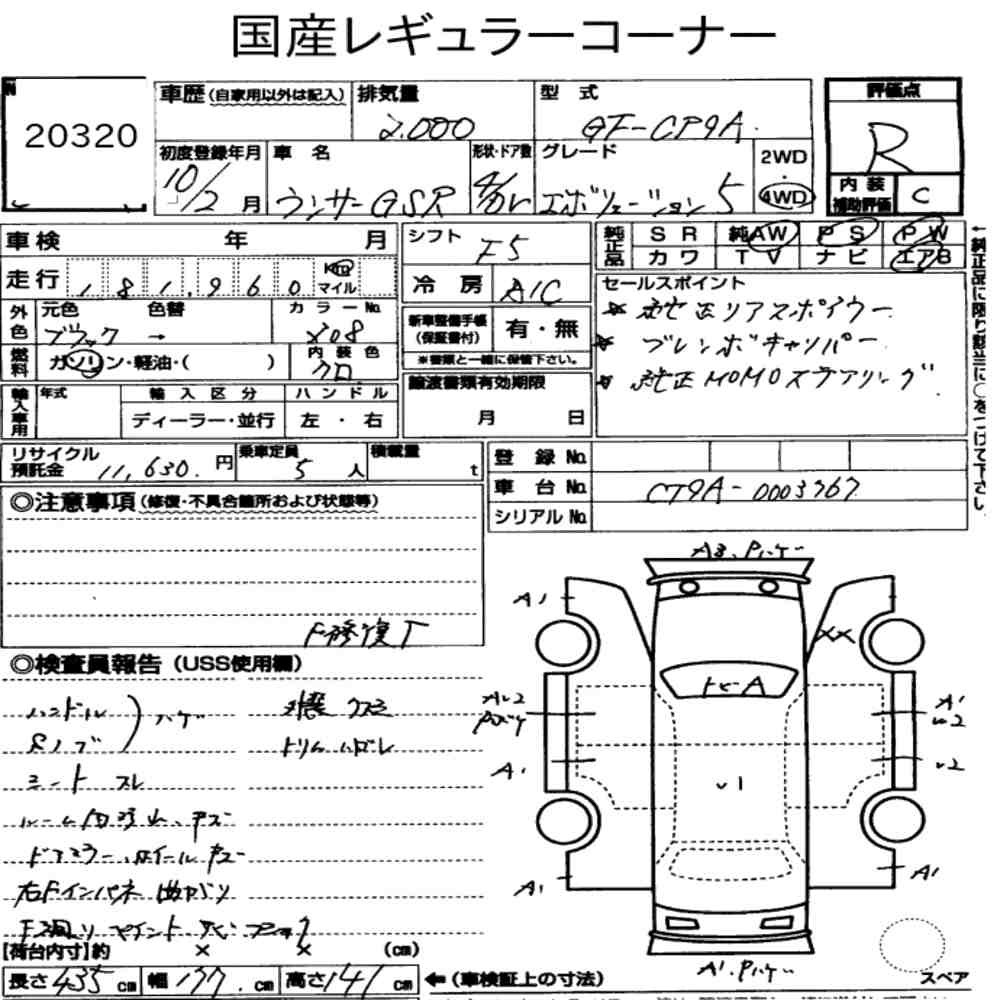 国産レギュラーコーナー
20320
車歴 (自家用以外は記入)
排気量
2.000
型式
GF-CP9A
評価点
R
初度登録年月
10/2月
車名
ランサーGSR
形状・ドア数
4/
グレード
エボリューション5
2WD
・
4WD
内装
補助評価
C
車検 年 月
シフト
F5
純正品
SR 純AW PS PW
カワ TV ナビ エアB
走行
181,960
Km
マイル
冷房
A/C
セールスポイント
純正リアスポイラー
ブレンボキャリパー
純正MOMOステアリング
外色
元色 色替
カラーNo
ブラック →
X08
新車整備手帳
(保証書付)
有・無
※書類と一緒に保管下さい。
燃料
ガソリン・軽油・( )
内装色
クロ
輸入車用
年式
輸入区分
ハンドル
ディーラー・並行
左・右
譲渡書類有効期限
月 日
←純正品に限り該当に○をつけて下さい。
リサイクル
預託金
11,630.円
乗車定員
5人
積載量
t
登録No
車台No
CT9A-0003767
シリアルNo
◎注意事項 (修復・不具合箇所および状態等)
F修復
◎検査員報告 (USS使用欄)
ハンドル
ハゲ
シートスレ
トリムハガレ
A3.Pハゲ
A1
XX
トビA
A1
A1
A1
U2
U2
U1
A1
A1
A1.Pハゲ
スペア
【荷台内寸】約 × × (cm)
長さ435cm 幅177.cm 高さ141cm
←(車検証上の寸法)